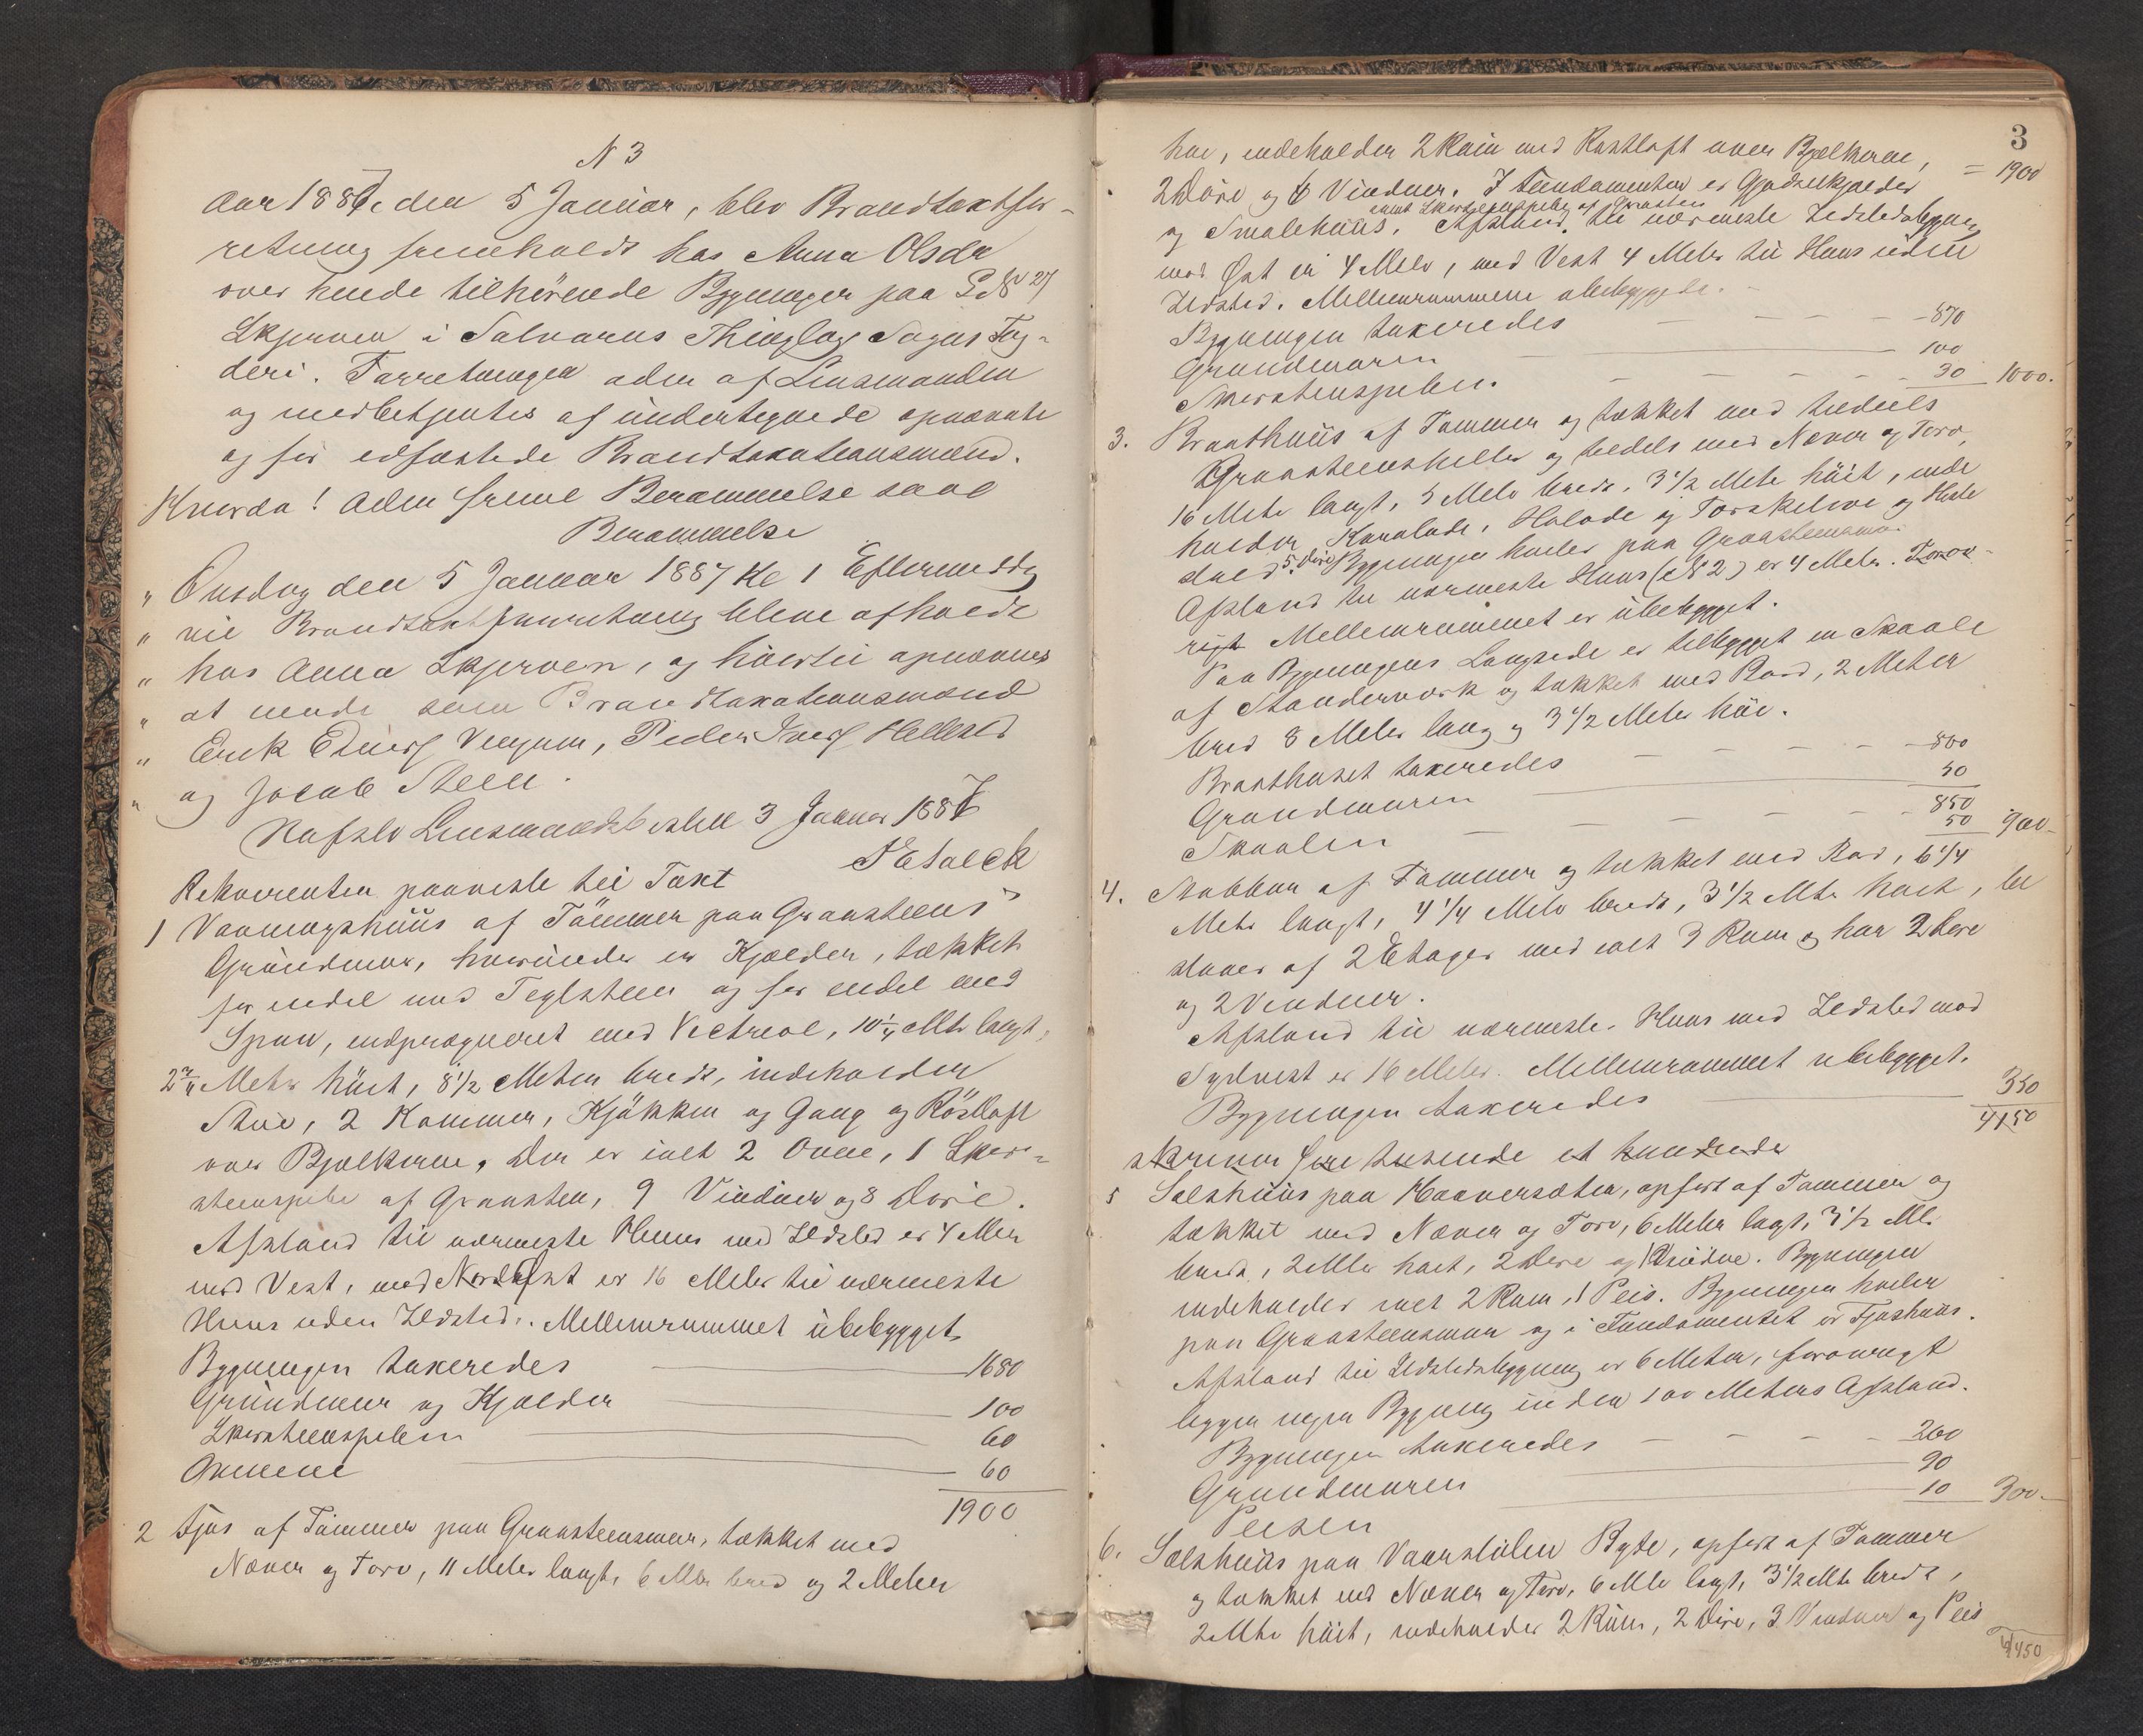 N 3
Aar 1887, den 5 Januar, blev Brandtaxtfor-
retning fremholdt hos Anna Olsdr
over hende tilhörende Bygninger paa GdN 27
Skjerven i Salvarus Thinglag Sogns Fog-
deri. Forretningen aden af Lensmanden
og medbetjentes af undertegnede opnævnte
og for edfæstede Brandtaxationsmænd.
Hvorda! Aden freml Berammelse saal
Berammelse
" Onsdag den 5 Januar 1887 Kl 1 Eftermiddag
" vil Brandtaxtforretning blive afholdt
" hos Anna Skjerven, og hüertil opnævnes
" at möde som Brandtaxationsmænd
" Erick Ednerss Veegum, Peder Iverss Helleste
" og Jacob Steen.
Hafslo Lensmandsbestill 3 Januar 1887
Rekvirenten paaviste til Taxt
1 Vaaningshuus af Tömmer paa Graasteens
Grundmur, hvorunder er Kjælder, tækket
for endel med Teglsteen og for endel med
Spon, indprægneret med Victreol, 10 1/4 Mtr langt,
2 3/4 Meter höit, 8 1/2 Meter bredt, indeholder
Stue, 2 Kammer, Kjökken og Gang og Röstloft
over Bjælkerne. Der er ialt 2 Ovne, 1 Skor-
steenspibe af Graasten, 9 Vinduer og 8 Döre.
Afstand til nærmeste Huus med Ildsted er 4 Meter
mod Vest, mod NordØst er 16 Meter til nærmeste
Huus uden Ildsted. Mellemrummet ubebygget
Bygningen taxeredes 1680
Grundmur og Kjælder 100
Skorsteenspiben 60
Ovnene 60
1900
2 Fjös af Tömmer paa Graasteensmur, tækket med
Næver og Torv, 11 Meter langt, 6 Mtr bred og 2 Meter
3
höi, indeholder 2 Rum med Röstloft over Bjælkerne, = 1900
2 Döre og 6 Vinduer. I Fundamentet er Gjødselkjælder
samt Skorsteenspibe af Graasten
og Smalehuus. Afstand til nærmeste Ildstedsbygning
mod Øst er 4 Meter, mod Vest 4 Meter til Huus uden
Ildsted. Mellemrummene ubebyggede.
Bygningen taxeredes 870
Grundmuren 100
Skorstenspiben. 30 1000.
3. Braathuus af Tømmer og tækket med tildeels
Graasteensheller og tildels med Næver og Torv,
16 Meter langt, 5 Meter bredt, 3 1/2 Meter höit, inde
holder Kornlade, Hølade og Torskelove og Heste
stald 5 Döre Bygningen hviler paa Graasteensmur.
Afstand til nærmeste Huus (N 2) er 4 Meter. Forøv-
rigt Mellemrummet er ubebygget.
Paa Bygningens Langside er tilbygget en Skaale
af Stenderværk og tækket med Bord, 2 Meter
bred 8 Meter lang og 3 1/2 Meter höi.
Braathuset taxeredes 800
Grundmuren 50
850
Skaalen 50 900
4. Stabbur af Tømmer og tækket med Bord, 6 1/4
Meter langt, 4 1/4 Meter bredt, 3 1/2 Mtr höit, be
staaer af 2 Etager med ialt 3 Rum og har 2 Döre
og 2 Vinduer.
Afstand til nærmeste Huus med Ildsted mod
Sydvest er 16 Meter. Mellemrummet ubebygget.
Bygningen taxeredes 350
4150
skriver fire tusende et hundrede
5 Sælshuus paa Haaversæter, opført af Tømmer og
tækket med Næver og Torv, 6 Meter langt, 3 1/2 Mtr
bredt, 2 Mtr höit, 2 Döre og 1 Vindue. Bygningen
indeholder ialt 2 Rum, 1 Peis. Bygningen hviler
paa Graasteensmur og i Fundamentet er Fjøshuus.
Afstand til Ildstedsbygning er 6 Meter, forøvrigt
ligger ingen Bygning inden 100 Meters Afstand.
Bygningen taxeredes 200
Grundmuren 90
Peisen 10 300
6. Sælshuus paa Vaarstölen Byte, opført af Tømmer
og tækket med Næver og Torv, 6 Mtr langt, 3 1/2 Mtr bredt,
2 Mtr höit, indeholder 2 Rum, 2 Döre, 3 Vinduer og Peis
4450